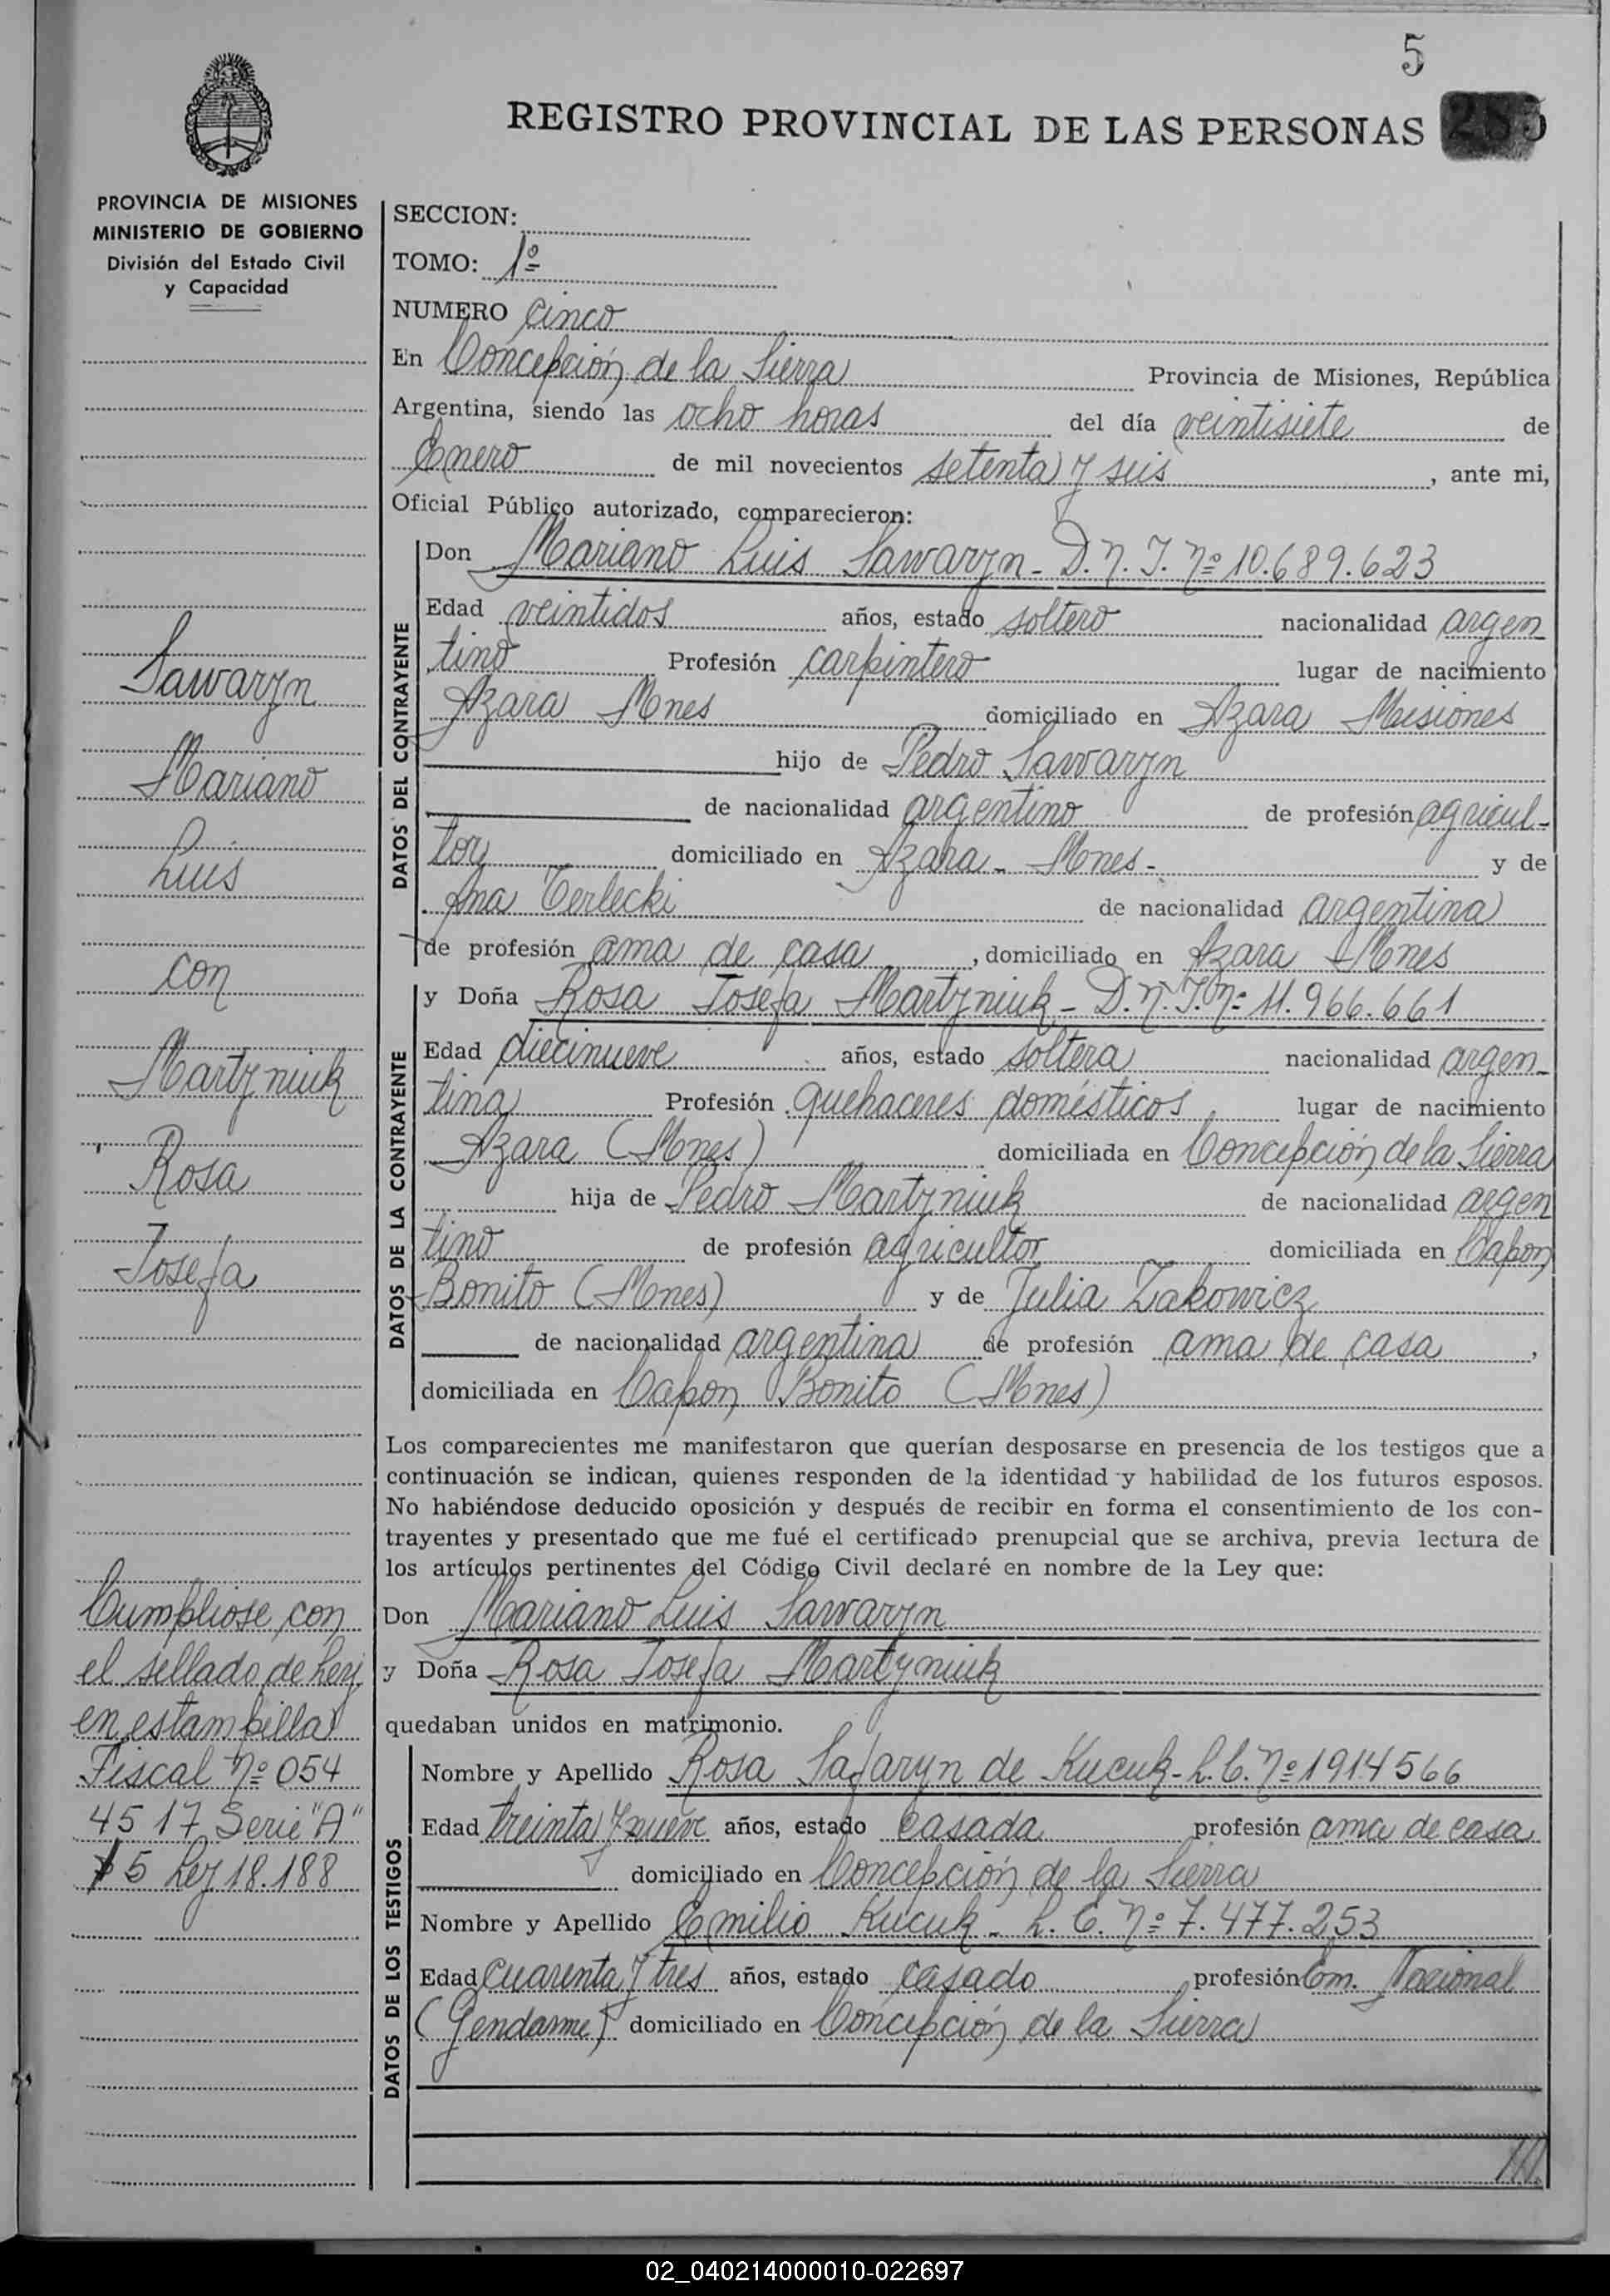 5
REGISTRO PROVINCIAL DE LAS PERSONAS
PROVINCIA DE MISIONES
MINISTERIO DE GOBIERNO
División del Estado Civil
y Capacidad
Sawaryn
Mariano
Luis
con
Martyniuk
Rosa
Josefa
Cumpliose con
el sellado de Ley
en estampilla
Fiscal Nº 054
45 17 Serie "A"
$5 Ley 18.188
SECCION:
TOMO: 1º
NUMERO Cinco
En Concepción de la Sierra Provincia de Misiones, República
Argentina, siendo las ocho horas del día veintisiete de
Enero de mil novecientos setenta y seis, ante mi,
Oficial Público autorizado, comparecieron:
DATOS DEL CONTRAYENTE
Don Mariano Luis Sawaryn - D.N.I. Nº 10.689.623
Edad veintidos años, estado soltero nacionalidad argen
tino Profesión carpintero lugar de nacimiento
Azara Mnes domiciliado en Azara Misiones
hijo de Pedro Sawaryn
de nacionalidad argentino de profesión agricul-
tor domiciliado en Azara - Mnes - y de
Ana Terlecki de nacionalidad argentina
de profesión ama de casa, domiciliado en Azara Mnes
DATOS DE LA CONTRAYENTE
y Doña Rosa Josefa Martyniuk - D.N.I. Nº 11.966.661
Edad diecinueve años, estado soltera nacionalidad argen-
tina Profesión quehaceres domésticos lugar de nacimiento
Azara (Mnes) domiciliada en Concepción de la Sierra
hija de Pedro Martyniuk de nacionalidad argen
tino de profesión agricultor domiciliada en Capon
Bonito (Mnes) y de Julia Zakowicz
de nacionalidad argentina de profesión ama de casa,
domiciliada en Capon Bonito (Mnes)
Los comparecientes me manifestaron que querían desposarse en presencia de los testigos que a
continuación se indican, quienes responden de la identidad y habilidad de los futuros esposos.
No habiéndose deducido oposición y después de recibir en forma el consentimiento de los con-
trayentes y presentado que me fué el certificado prenupcial que se archiva, previa lectura de
los artículos pertinentes del Código Civil declaré en nombre de la Ley que:
Don Mariano Luis Sawaryn
y Doña Rosa Josefa Martyniuk
quedaban unidos en matrimonio.
DATOS DE LOS TESTIGOS
Nombre y Apellido Rosa Safaryn de Kucuk - L.C. Nº 1914566
Edad treinta y nueve años, estado casada profesión ama de casa
domiciliado en Concepción de la Sierra
Nombre y Apellido Emilio Kucuk - L.E. Nº 7.477.253
Edad cuarenta y tres años, estado casado profesión Nacional
(Gendarme) domiciliado en Concepción de la Sierra
02_040214000010-022697